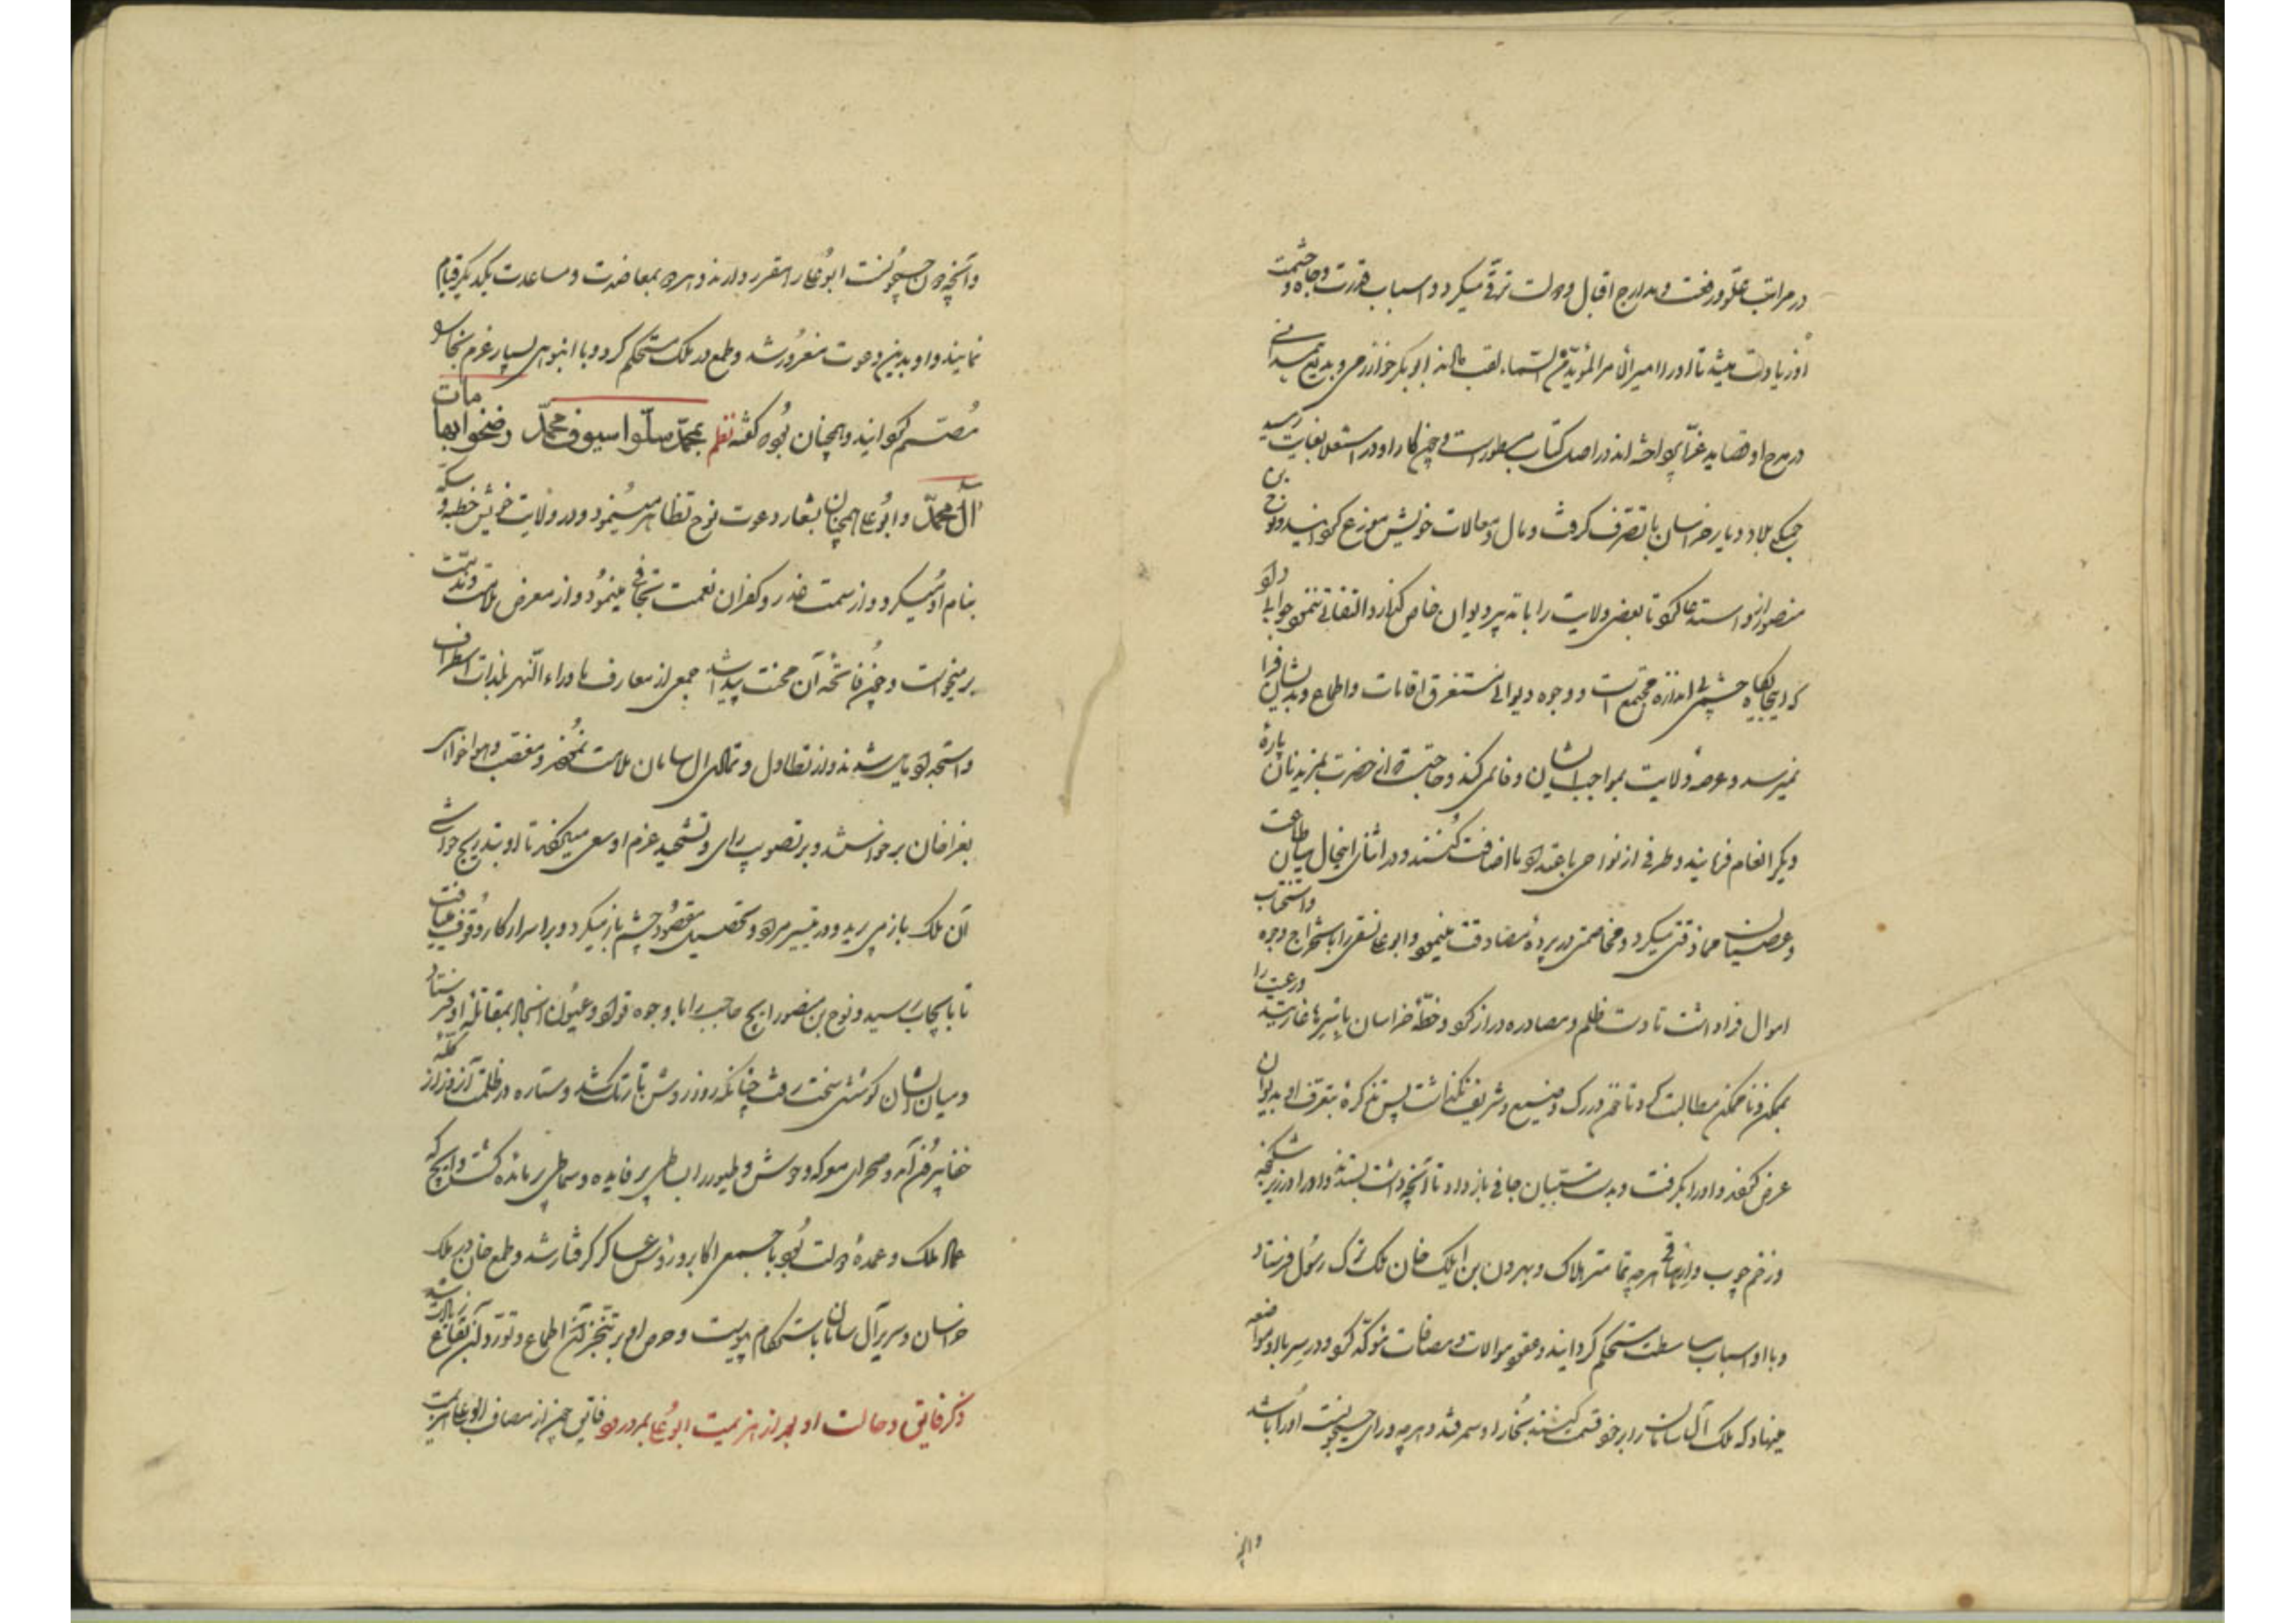 در مراتب علو و رفعت و مدارج اقبال و دولت ترقی میکرد و اسباب قدرت و جاه و حشمت
او زیادت میشد تا او را امیر الأمرا المؤید من السماء لقب دادند ابو بکر خوارزمی و بدیع همدانی
در مدح او قصاید غرا پرداخته اند در اصل کتاب مسطور است و چون کار او در استعلا بغایت رسید
جملگی بلاد و دیار خراسان با تصرف گرفت و مال و معاملات خویش موزع گردانید و نوح بن
منصور ازو استدعا کرد تا بعضی ولایت را با تدبیر دیوان خاص گذارد التفاتی ننمود و جواب داد
که اینجایگاه حشمی بی اندازه مجتمع است و وجوه دیوانی مستغرق اقامات و اطماع و بدیشان فرا
نمیرسد و عرصه ولایت بمواجب ایشان وفا نمی کند و حاجت است از حضرت بمزید نان پارۀ
دیگر انعام فرمایند و طرفی از نواحی با عقد او اضافت کنند و در اثنای اینحال میان طاعت
و عصیان مماذقتی میکرد و مخاصمتی در پردۀ مصادقت مینمود و ابو علی نسفی را باستخراج وجوه و استجلاب
اموال فرا داشت تا دست ظلم و مصادره دراز کرد و خطۀ خراسان باسرها غارتید و رعیت را
بممکن و ناممکن مطالبت کرد تا تخم در رگ وضیع و شریف نگذاشت پس تذکرۀ بتصرف او بدیوان
عرض کردند و او را بگرفت و بدست جانی باز داد تا آنچه داشت بستدند و او را در زیر شکنجه
و زخم چوب و ارهاق هرچه تمامتر هلاک و بهرون بن ایلک خان ملک ترک رسول فرستاد
و با او اسباب مباسطت مستحکم گردانید و عقود موالات و مصافات موکد کرد و در سر با او مواضعه
مینهاد که ملک آل سامان را بر خود قسمت کنند بخارا و سمرقند و هرچه ورای جیحونست او را باشد
والچه
وآنچه دون جیحونست ابو علی را مقرر دارند و هر دو بمعاضدت و مساعدت یکدیگر قیام
نمایند و او بدین دعوت مغرور شد و طمع در ملک مستحکم کرد و با انبوهی بسیار عزم بخارا
مصمم گردانید و همچنان بود که گفته نظم بمحمد سلوا سیوف محمد رضخوا بها هامات
آل محمد و ابو علی همچنان بشعار دعوت نوح تظاهر مینمود و در ولایت خویش خطبه و سکه
بنام او میکرد و از سمت غدر و کفران نعمت تجافی مینمود و از معرض ملامت و مذمت
برمیخواست و چون فاتحه آن محنت پیدا شد جمعی از معارف ماوراء النهر بلذات استطراف
و استجداد مایل شدند و از تطاول و تمادی آل سامان ملامت نمودند و متعصب و هواخواه
بغراخان برخواستند و بر تصویب رای و تشحیذ عزم او سعی میکردند تا او بتدریج حواشی
آن ملک باز می برید و در تیسیر مراد و تحصیل مقصود چشم باز میکرد و بر اسرار کار وقوف مییافت
تا باسبیجاب رسید و نوح بن منصور اینج حاجب را با وجوه قواد و عیون رجال بمقاتله او فرستاد
و میان ایشان کوششی سخت رفت چنانکه روز روشن تاریک شد و ستاره در ظلمت آنروز از کله
خفا بیرون آمد و صحرای معرکه وحوش و طیور را بساطی پر فایده و سماطی پر مائده گشت و اینج که
عماد ملک و عمدۀ دولت بود با جمعی اکابر و رؤس عساکر گرفتار شد و طمع خان در ملک
خراسان و سریر آل سامان باستحکام پیوست و حرص او بر تنجز آن اطماع و تورد آن بقاع زیادت شد
ذکر فایق و حالت او بعد از هزیمت ابو علی بمرو رود فایق چون از مصاف ابو علی هزیمت